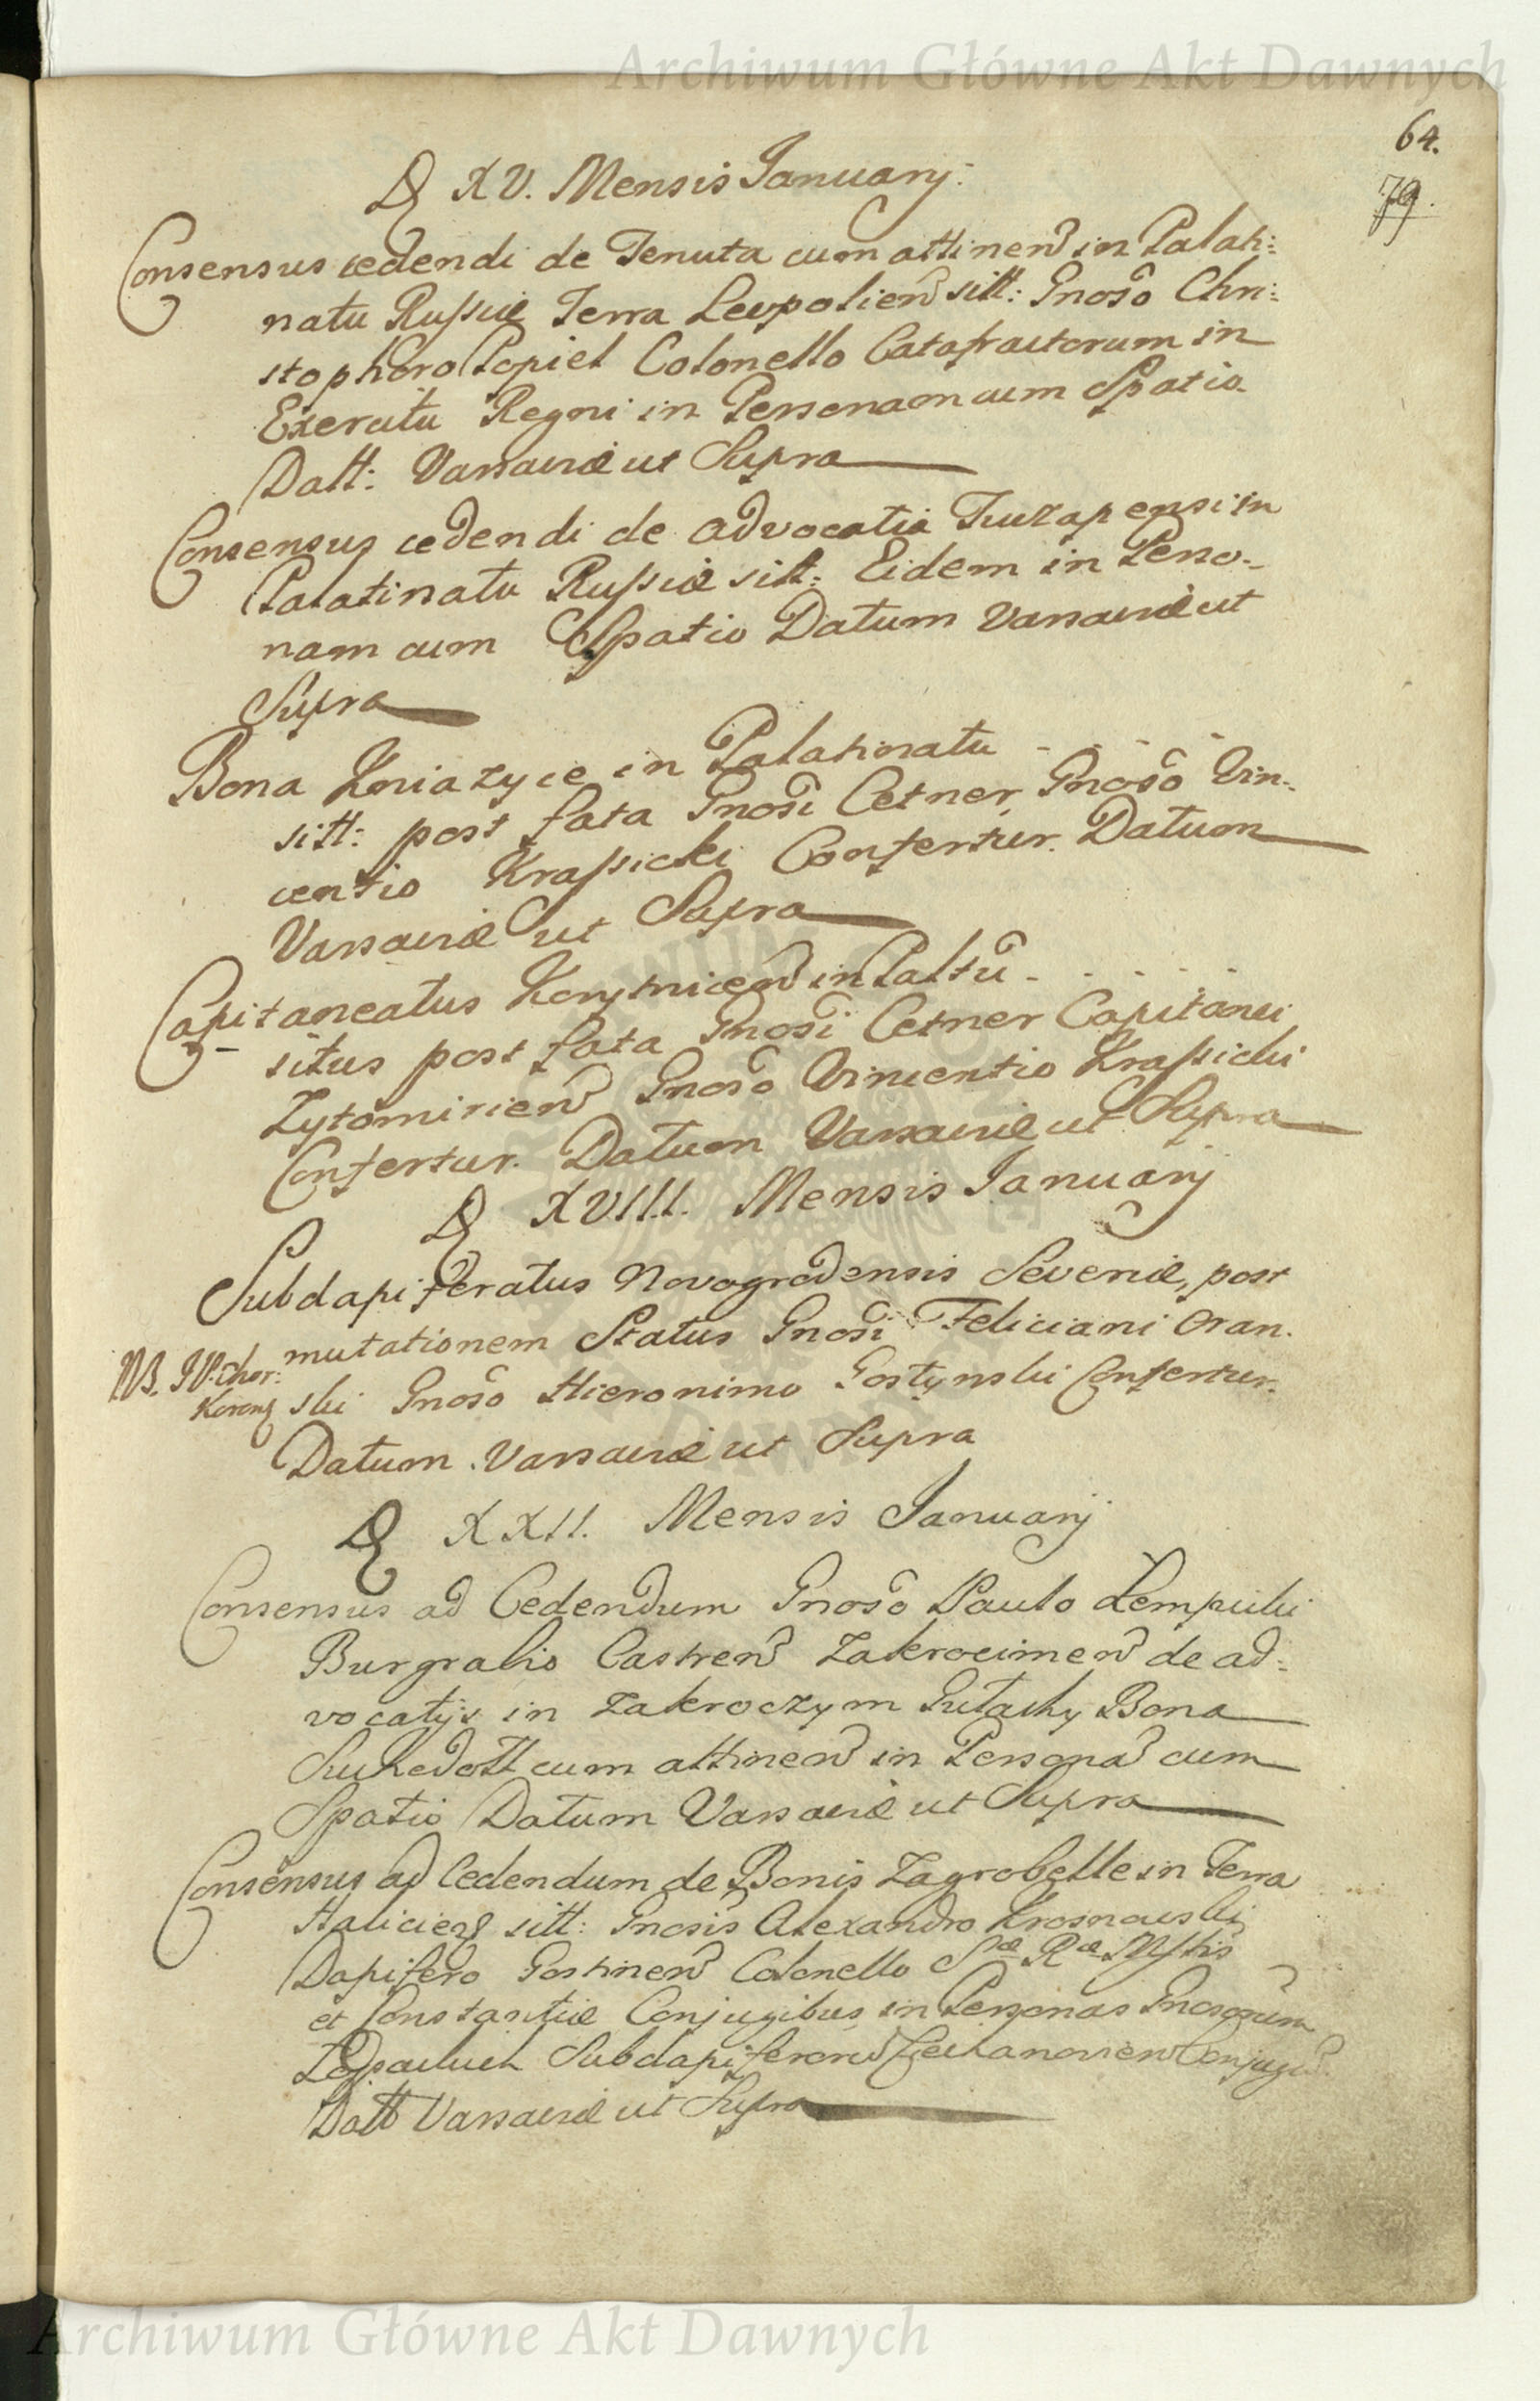 Archiwum Główne Akt Dawnych
64.
79.
D XV. Mensis Januarij.
Consensus cedendi de Tenuta cum attinen in Palati:
natu Russiæ Terra Leopolien sitt: Gnoso Chri:
stophoro Popiel Colonello Catafractorum in
Exercitu Regni in Personam cum Spatio.
Datt: Varsaviæ ut Supra
Consensus cedendi de advocatia in
Palatinatu Russiæ sitt: Eidem in Perso-
nam cum Spatio Datum Varsaviæ ut
Supra
Bona Kniazyce in Palatinatu - - - -
sitt: post fata Gnosi Cetner, Gnoso Vin-
centio Krassicki Confertur. Datum
Varsaviæ ut Supra
Capitaneatus Korytnicen in Palttu - - - - -
situs post fata Gnosi Cetner Capitanei
Zytomirien Gnoso Vincentio Krassicki
Confertur. Datum Varsaviæ ut Supra
D XVIII. Mensis Januarij
Subdapiferatus Novogrodensis Severiæ, post
mutationem Status Gnosi Feliciani Oran.
NB. JW. Chor:
Koronny
ski Gnoso Hieronimo Gostynski Confertur.
Datum Varsaviæ ut Supra
D XXII. Mensis Januarij
Consensus ad Cedendum Gnoso Paulo Lempicki
Burgrabio Castren Zakrocimen de ad:
vocatijs in Zakroczym Bona
cum attinen in Personã cum
Spatio Datum Varsaviæ ut Supra
Consensus ad Cedendum de Bonis Zagrobelle in Terra
Halicien sitt: Gnosis Alexandro Krosnowski
Dapifero Gostinen Colonello Sæ Ræ Mttis
et Constantiæ Conjugibus in Personas Gnosorum
Subdapiferorum Ciechanovien Conjugum
Datt Varsaviæ ut Supra
Archiwum Główne Akt Dawnych